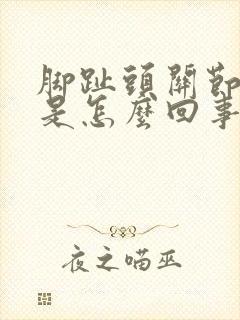 脚趾頭關節
是怎麼回事
夜之喵巫